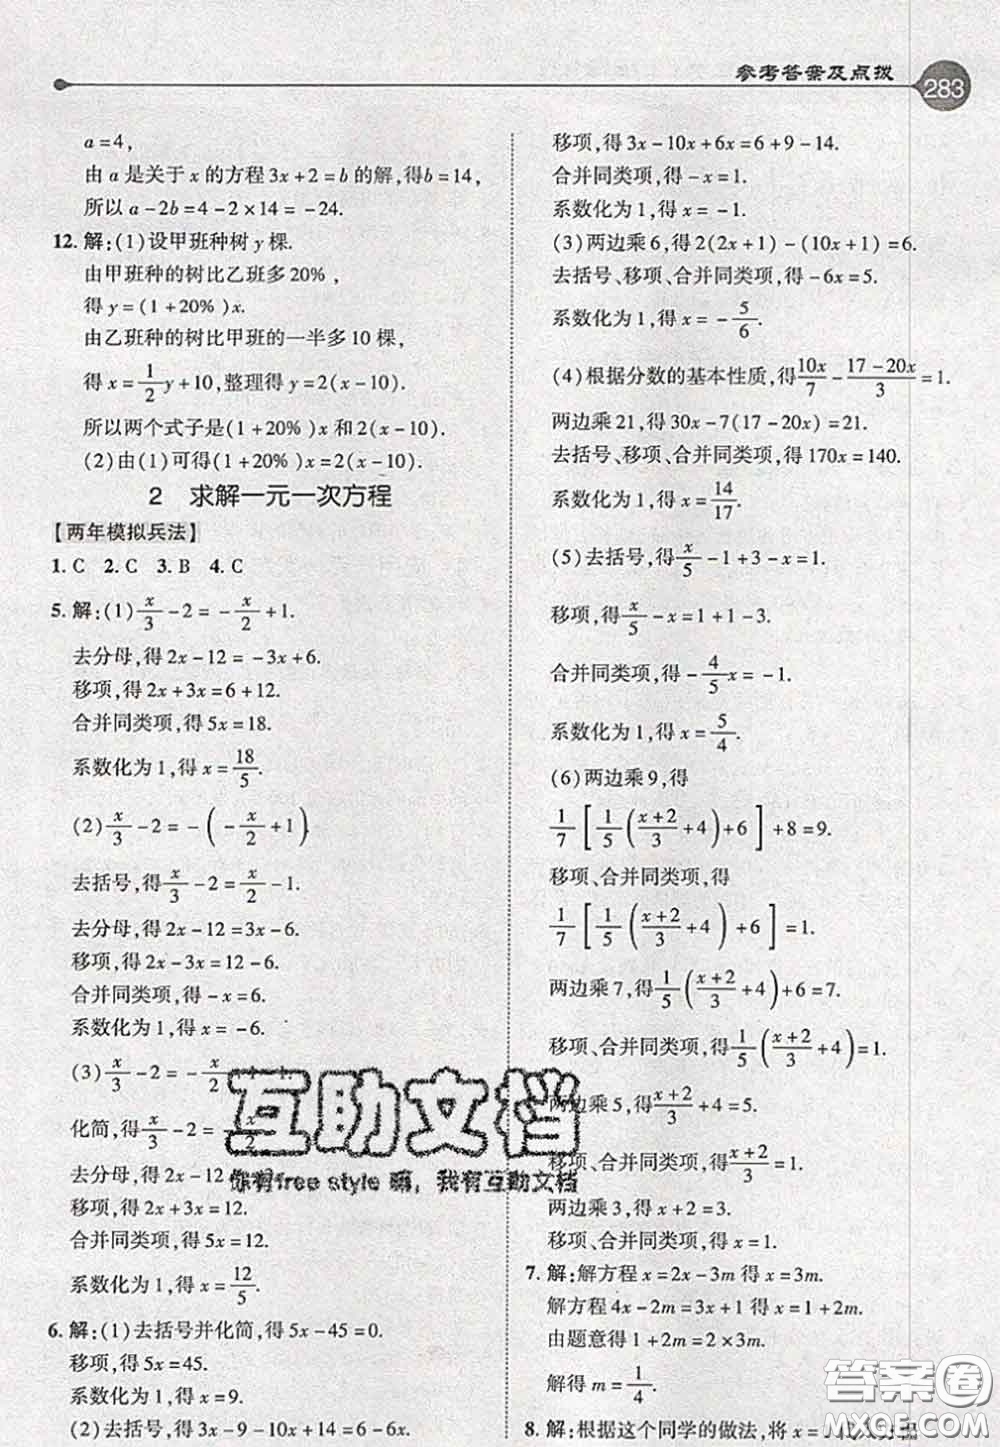 参考答案及点拨
283
a=4,
由 a 是关于 x 的方程 3x+2=b 的解,得b=14,
所以 a-2b=4-2×14= -24.
12. 解:(1)设甲班种树 y 棵.
由甲班种的树比乙班多20%,
得 y=(1+20%)x.
由乙班种的树比甲班的一半多10棵,
得 x=1/2y+10,整理得 y=2(x-10).
所以两个式子是(1+20%)x 和 2(x-10).
(2)由(1)可得(1+20%)x=2(x-10).
2 求解一元一次方程
【两年模拟兵法】
1. C 2. C 3. B 4. C
5. 解:(1)x/3-2= -x/2+1.
去分母,得 2x-12= -3x+6.
移项,得 2x+3x=6+12.
合并同类项,得 5x=18.
系数化为1,得 x=18/5.
(2)x/3-2= -(-x/2+1).
去括号,得x/3-2=x/2-1.
去分母,得 2x-12=3x-6.
移项,得 2x-3x=12-6.
合并同类项,得 -x=6.
系数化为1,得 x= -6.
(3)x/3-2= 1.
化简,得x/3-2= -x/2
去分母,得 2x-12
移项,得 2x+3x=12.
合并同类项,得 5x=12.
系数化为1,得 x=12/5.
6. 解:(1)去括号并化简,得 5x-45=0.
移项,得 5x=45.
系数化为1,得 x=9.
(2)去括号,得 3x-9-10x+14=6-6x.
移项,得 3x-10x+6x=6+9-14.
合并同类项,得 -x=1.
系数化为1,得 x= -1.
(3)两边乘6,得 2(2x+1)-(10x+1)=6.
去括号、移项、合并同类项,得 -6x=5.
系数化为1,得 x= -5/6.
(4)根据分数的基本性质,得10x/7-(17-20x)/3=1.
两边乘21,得 30x-7(17-20x)=21.
去括号、移项、合并同类项,得 170x=140.
系数化为1,得 x=14/17.
(5)去括号,得x/5-1+3-x=1.
移项,得x/5-x=1+1-3.
合并同类项,得 -4/5x= -1.
系数化为1,得 x=5/4.
(6)两边乘9,得
1/7[1/5((x+2)/3+4)+6]+8=9.
移项、合并同类项,得
1/7[1/5((x+2)/3+4)+6]=1.
两边乘7,得1/5((x+2)/3+4)+6=7.
移项、合并同类项,得1/5((x+2)/3+4)=1.
两边乘5,得(x+2)/3+4=5.
移项、合并同类项,得(x+2)/3=1.
两边乘3,得 x+2=3.
移项、合并同类项,得 x=1.
7. 解:解方程 x=2x-3m 得 x=3m.
解方程 4x-2m=x+1 得 x=(1+2m)/3.
由题意得 1+2m=2×3m.
解得 m=1/4.
8. 解:根据这个同学的做法,将 x=
互助文档
你有free style 嘛,我有互助文档
答案圈
MXQE.COM